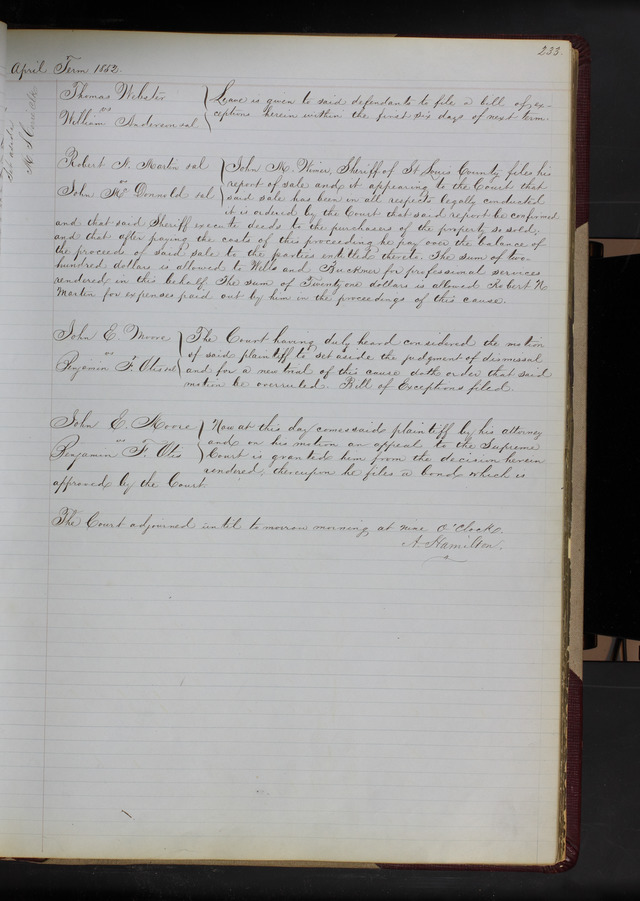 233.
April Term 1852.
Thomas Webster
vs
William Anderson et al
Leave is given to said defendants to file a bill of ex-
ceptions herein within the first six days of next term.
Robert N. Martin et al
vs
John Mc Donnold et al
John M. Wimer, Sheriff of St Louis County files his
report of sale and it appearing to the Court that
said sale has been in all respects legally conducted
it is ordered by the Court that said report be confirmed
and that said Sheriff execute deeds to the purchasers of the property so sold,
and that after paying the costs of this proceeding he pay over the balance of
the proceeds of said sale to the parties entitled thereto. The sum of two
hundred dollars is allowed to Wells and Buckner for professional services
rendered in this behalf. The sum of Twenty one dollars is allowed Robert N
Martin for expenses paid out by him in the proceedings of this cause.
John E. Moore
vs
Benjamin F. Otis et al
The Court having duly heard considered the motion
of said plaintiff to set aside the judgment of dismissal
and for a new trial of this cause doth order that said
motion be overruled. Bill of Exceptions filed.
John E. Moore
vs
Benjamin F. Otis
Now at this day comes said plaintiff by his attorney
and on his motion an appeal to the Supreme
Court is granted him from the decision herein
rendered, thereupon he files a bond which is
approved by the Court
The Court adjourned until to morrow morning at nine O'Clock.
A. Hamilton.